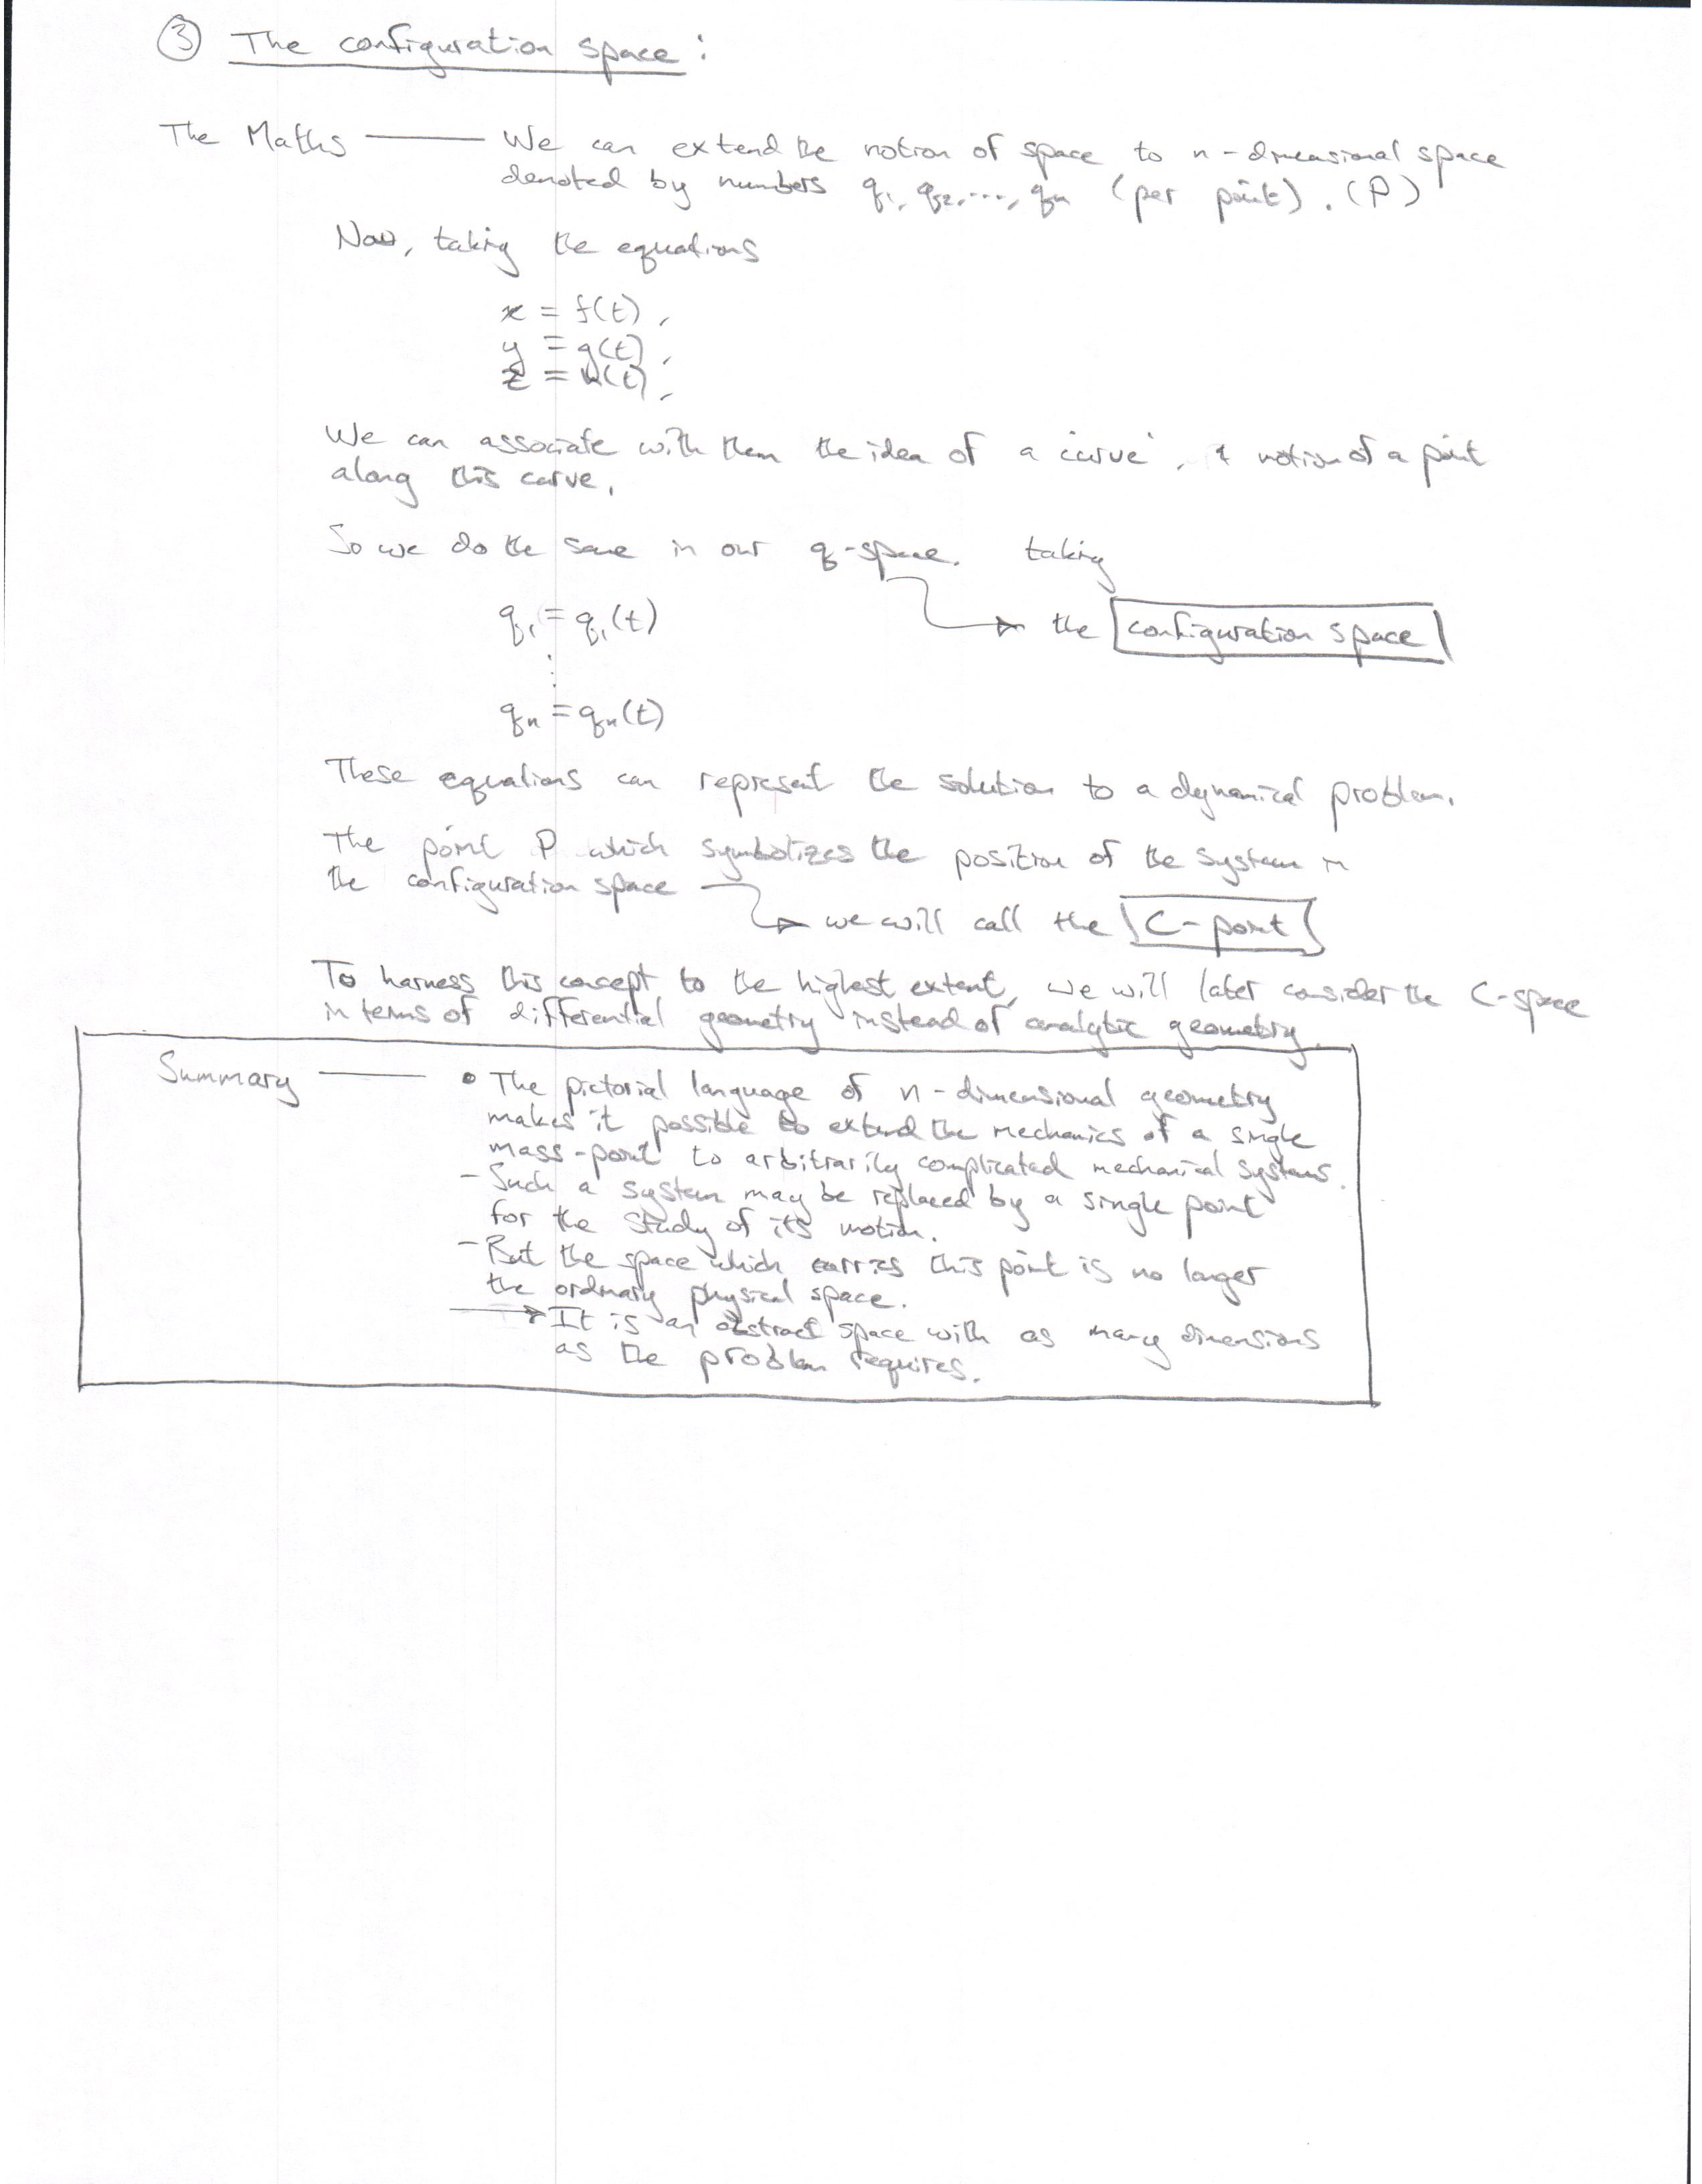 ③ The configuration space :
The Maths —— We can extend the notion of space to n-dimensional space
denoted by numbers q₁, q₂, ..., qₙ (per point). (P)
Now, taking the equations
x = f(t),
y = g(t),
z = h(t),
We can associate with them the idea of a 'curve', & motion of a point
along this curve.
So we do the same in our q-space. taking
q₁ = q₁(t)
the configuration space
⋮
qₙ = qₙ(t)
These equations can represent the solution to a dynamical problem.
The point P which symbolizes the position of the system in
the configuration space
we will call the C-point
To harness this concept to the highest extent, we will later consider the C-space
in terms of differential geometry instead of analytic geometry.
Summary —— • The pictorial language of n-dimensional geometry
makes it possible to extend the mechanics of a single
mass-point to arbitrarily complicated mechanical systems.
- Such a system may be replaced by a single point
for the study of its motion.
- But the space which carries this point is no longer
the ordinary physical space.
→ It is an abstract space with as many dimensions
as the problem requires.